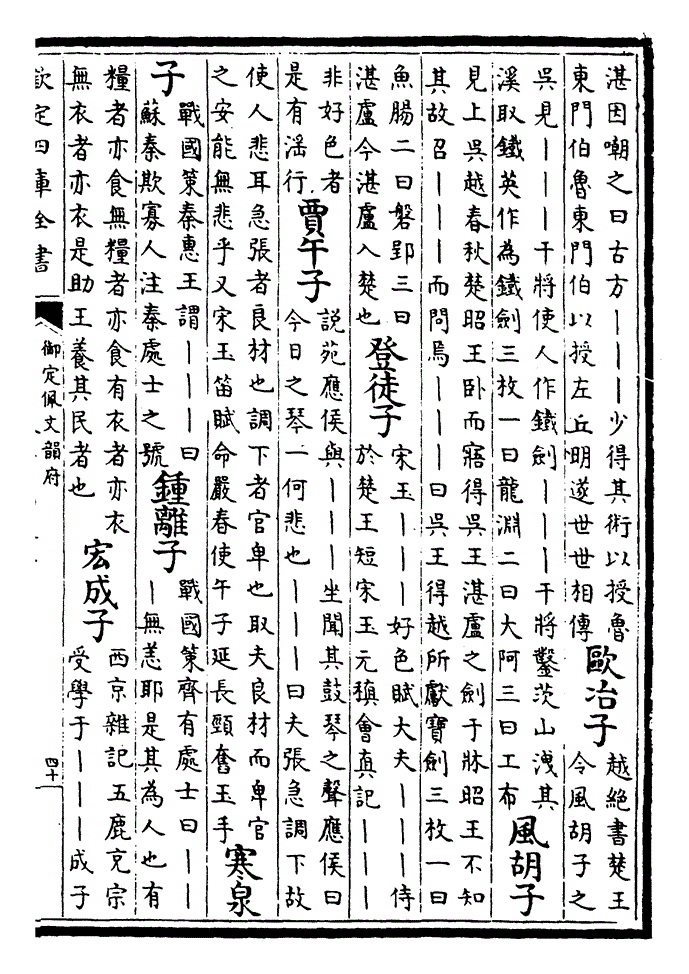 湛因嘲之曰古方丨丨丨少得其術以授魯
東門伯魯東門伯以授左丘明遂世世相傳
歐冶子
越絶書楚王
令風胡子之
吳見丨丨丨干將使人作鐵劍丨丨丨干將鑿茨山洩其
溪取鐵英作為鐵劍三枚一曰龍淵二曰大阿三曰工布
風胡子
見上吳越春秋楚昭王卧而寤得吳王湛盧之劍于牀昭王不知
其故召丨丨丨而問焉丨丨丨曰吳王得越所獻寶劍三枚一曰
魚腸二曰磐郢三曰
湛盧今湛盧入楚也
登徒子
宋玉丨丨丨好色賦大夫丨丨丨侍
於楚王短宋玉元稹會真記丨丨丨
非好色者
是有滛行
賈午子
説苑應侯與丨丨丨坐聞其鼓琴之聲應侯曰
今日之琴一何悲也丨丨丨曰夫張急調下故
使人悲耳急張者良材也調下者官卑也取夫良材而卑官
之安能無悲乎又宋玉笛賦命嚴春使午子延長頸奮玉手
寒泉
子
戰國策秦惠王謂丨丨丨曰
蘇秦欺寡人注秦處士之號
鍾離子
戰國策齊有處士曰丨丨
丨無恙耶是其為人也有
糧者亦食無糧者亦食有衣者亦衣
無衣者亦衣是助王養其民者也
宏成子
西京雜記五鹿充宗
受學于丨丨丨成子
欽定四庫全書
御定佩文韻府
四十